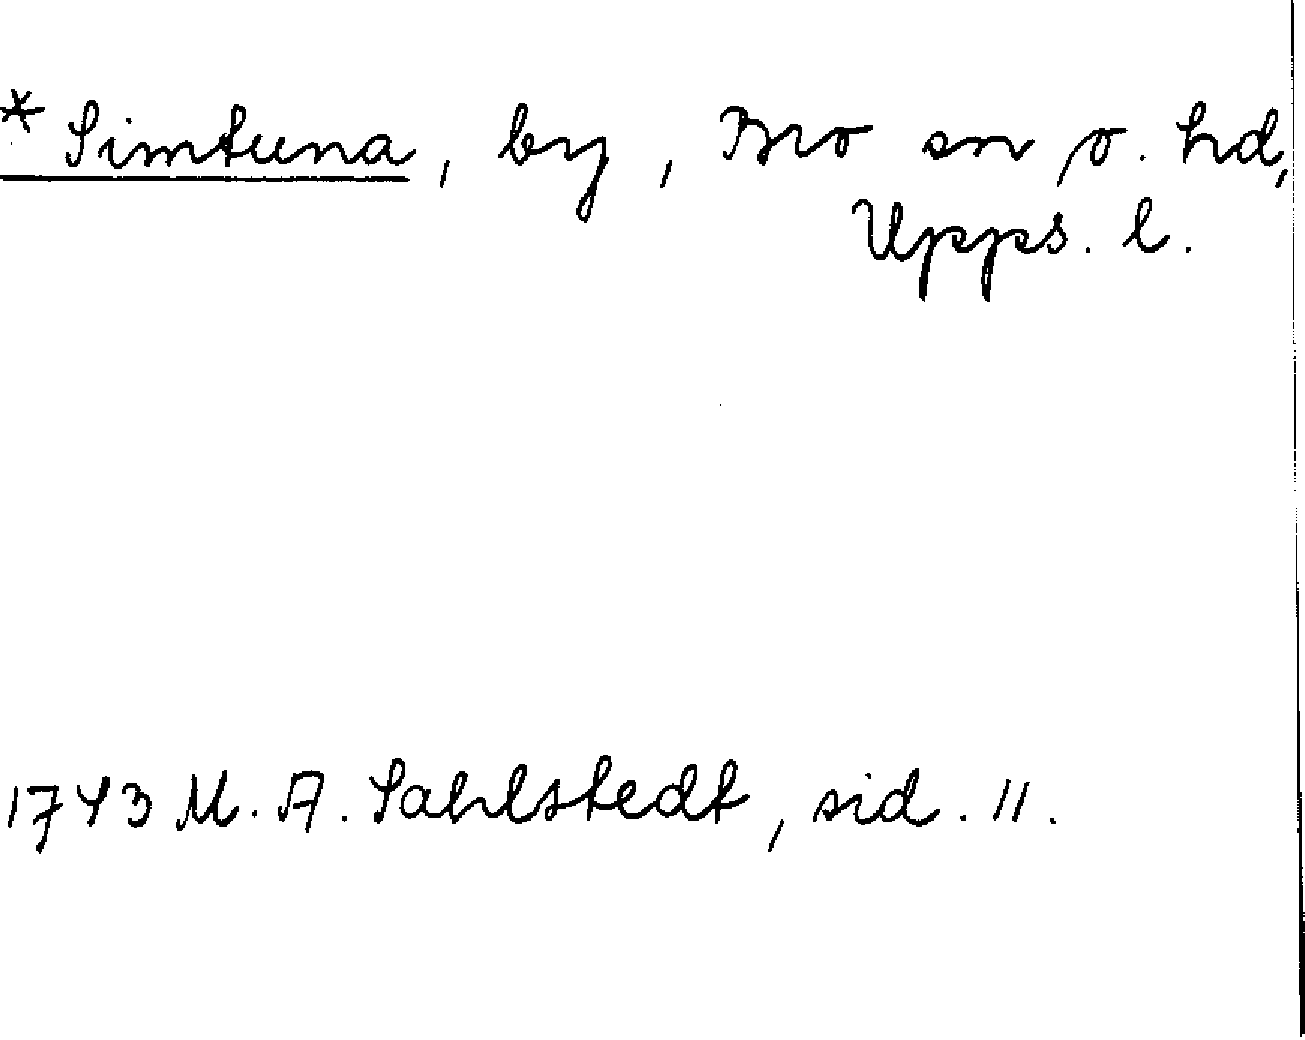 * Simtuna, by, Bro sn o. hd,
Upps. l.
1743 M. A. Sahlstedt, sid. 11.